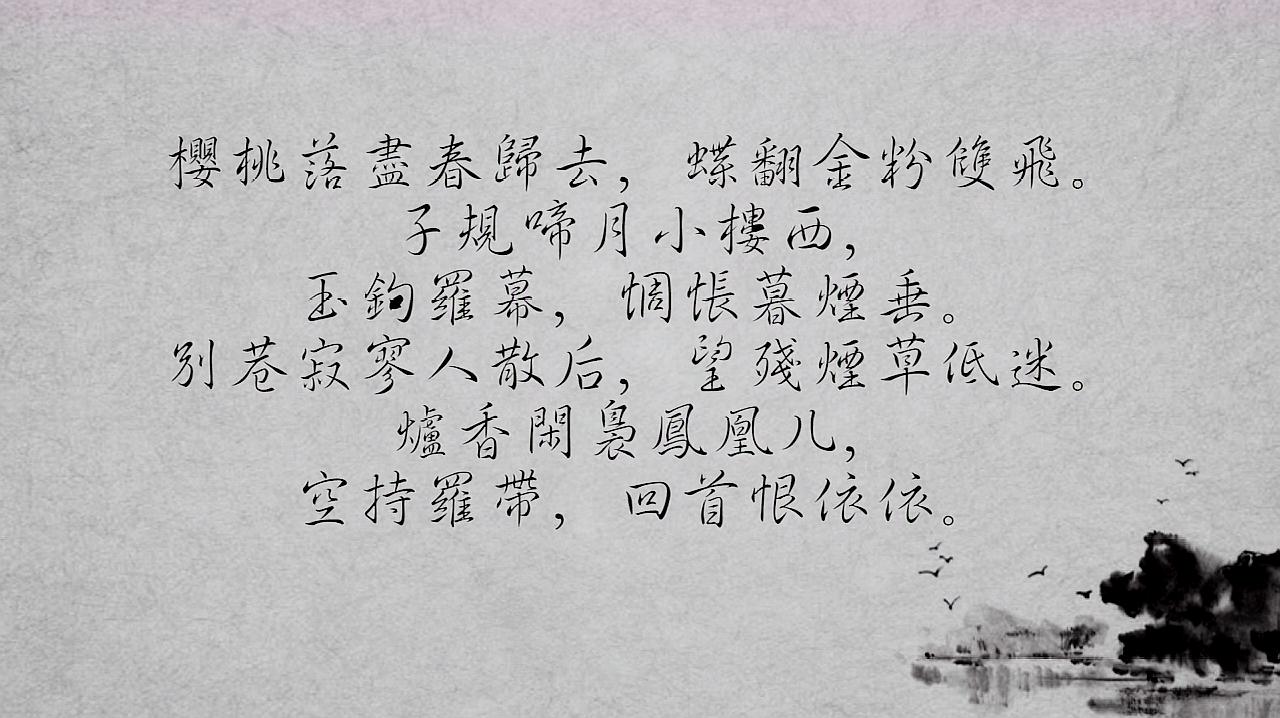 櫻桃落盡春歸去，蝶翻金粉雙飛。
子規啼月小樓西，
玉鉤羅幕，惆悵暮煙垂。
別巷寂寥人散后，望殘煙草低迷。
爐香閑裊鳳凰儿，
空持羅帶，回首恨依依。